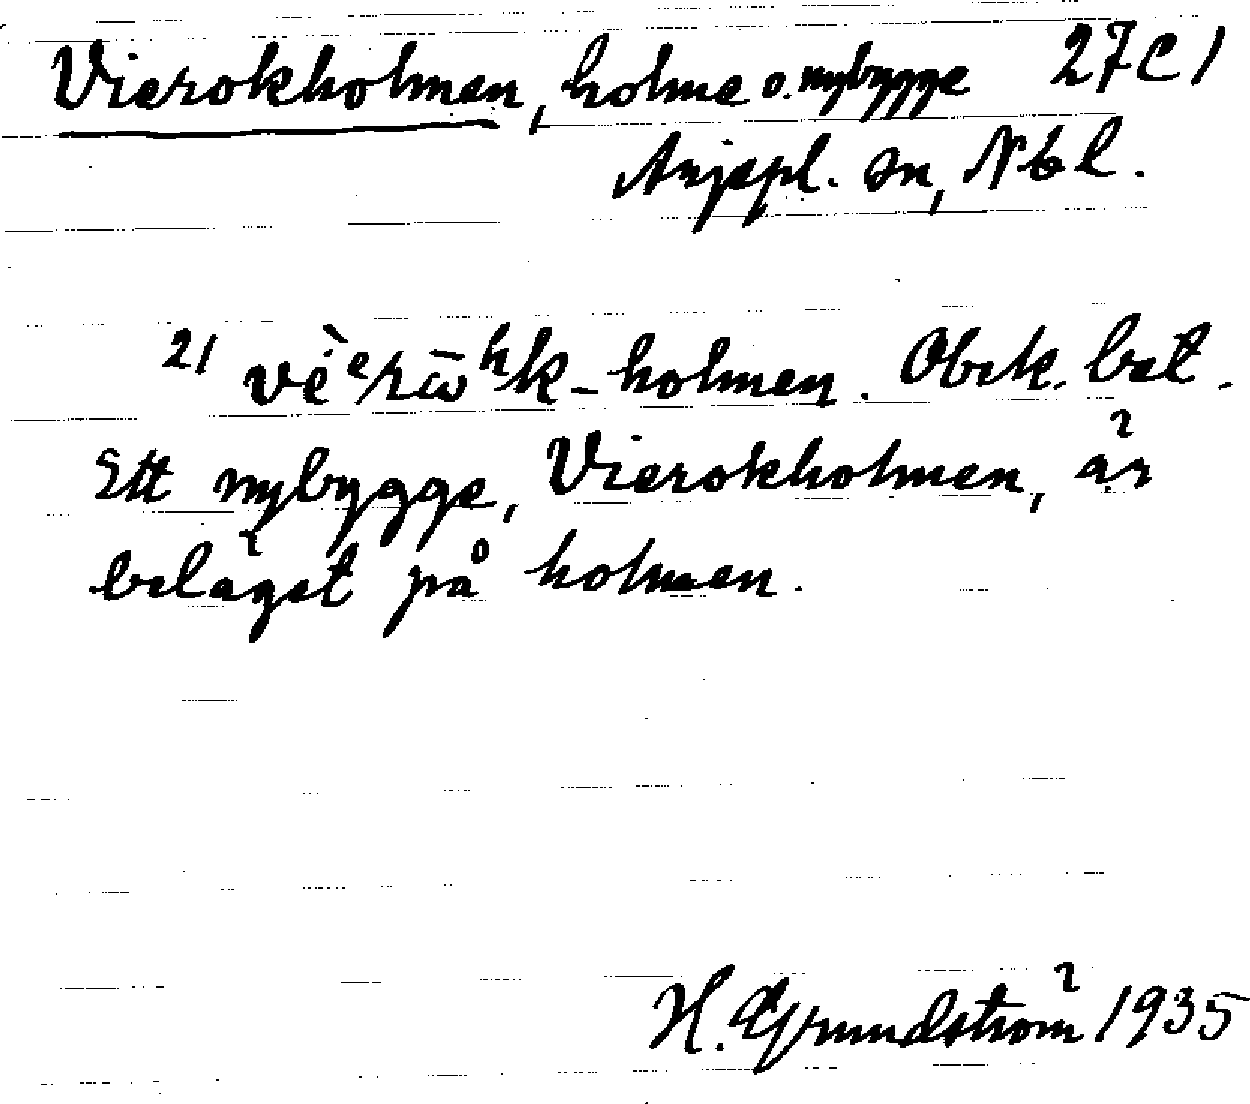 Vierokholmen, holme o. nybygge 27 C 1
Arjepl. sn, Nbl.
2/ vè̇ᵉrω̄ʰk-holmen. Obek. bet.
Ett nybygge, Vierokholmen, är
beläget på holmen.
H. Grundström 1935